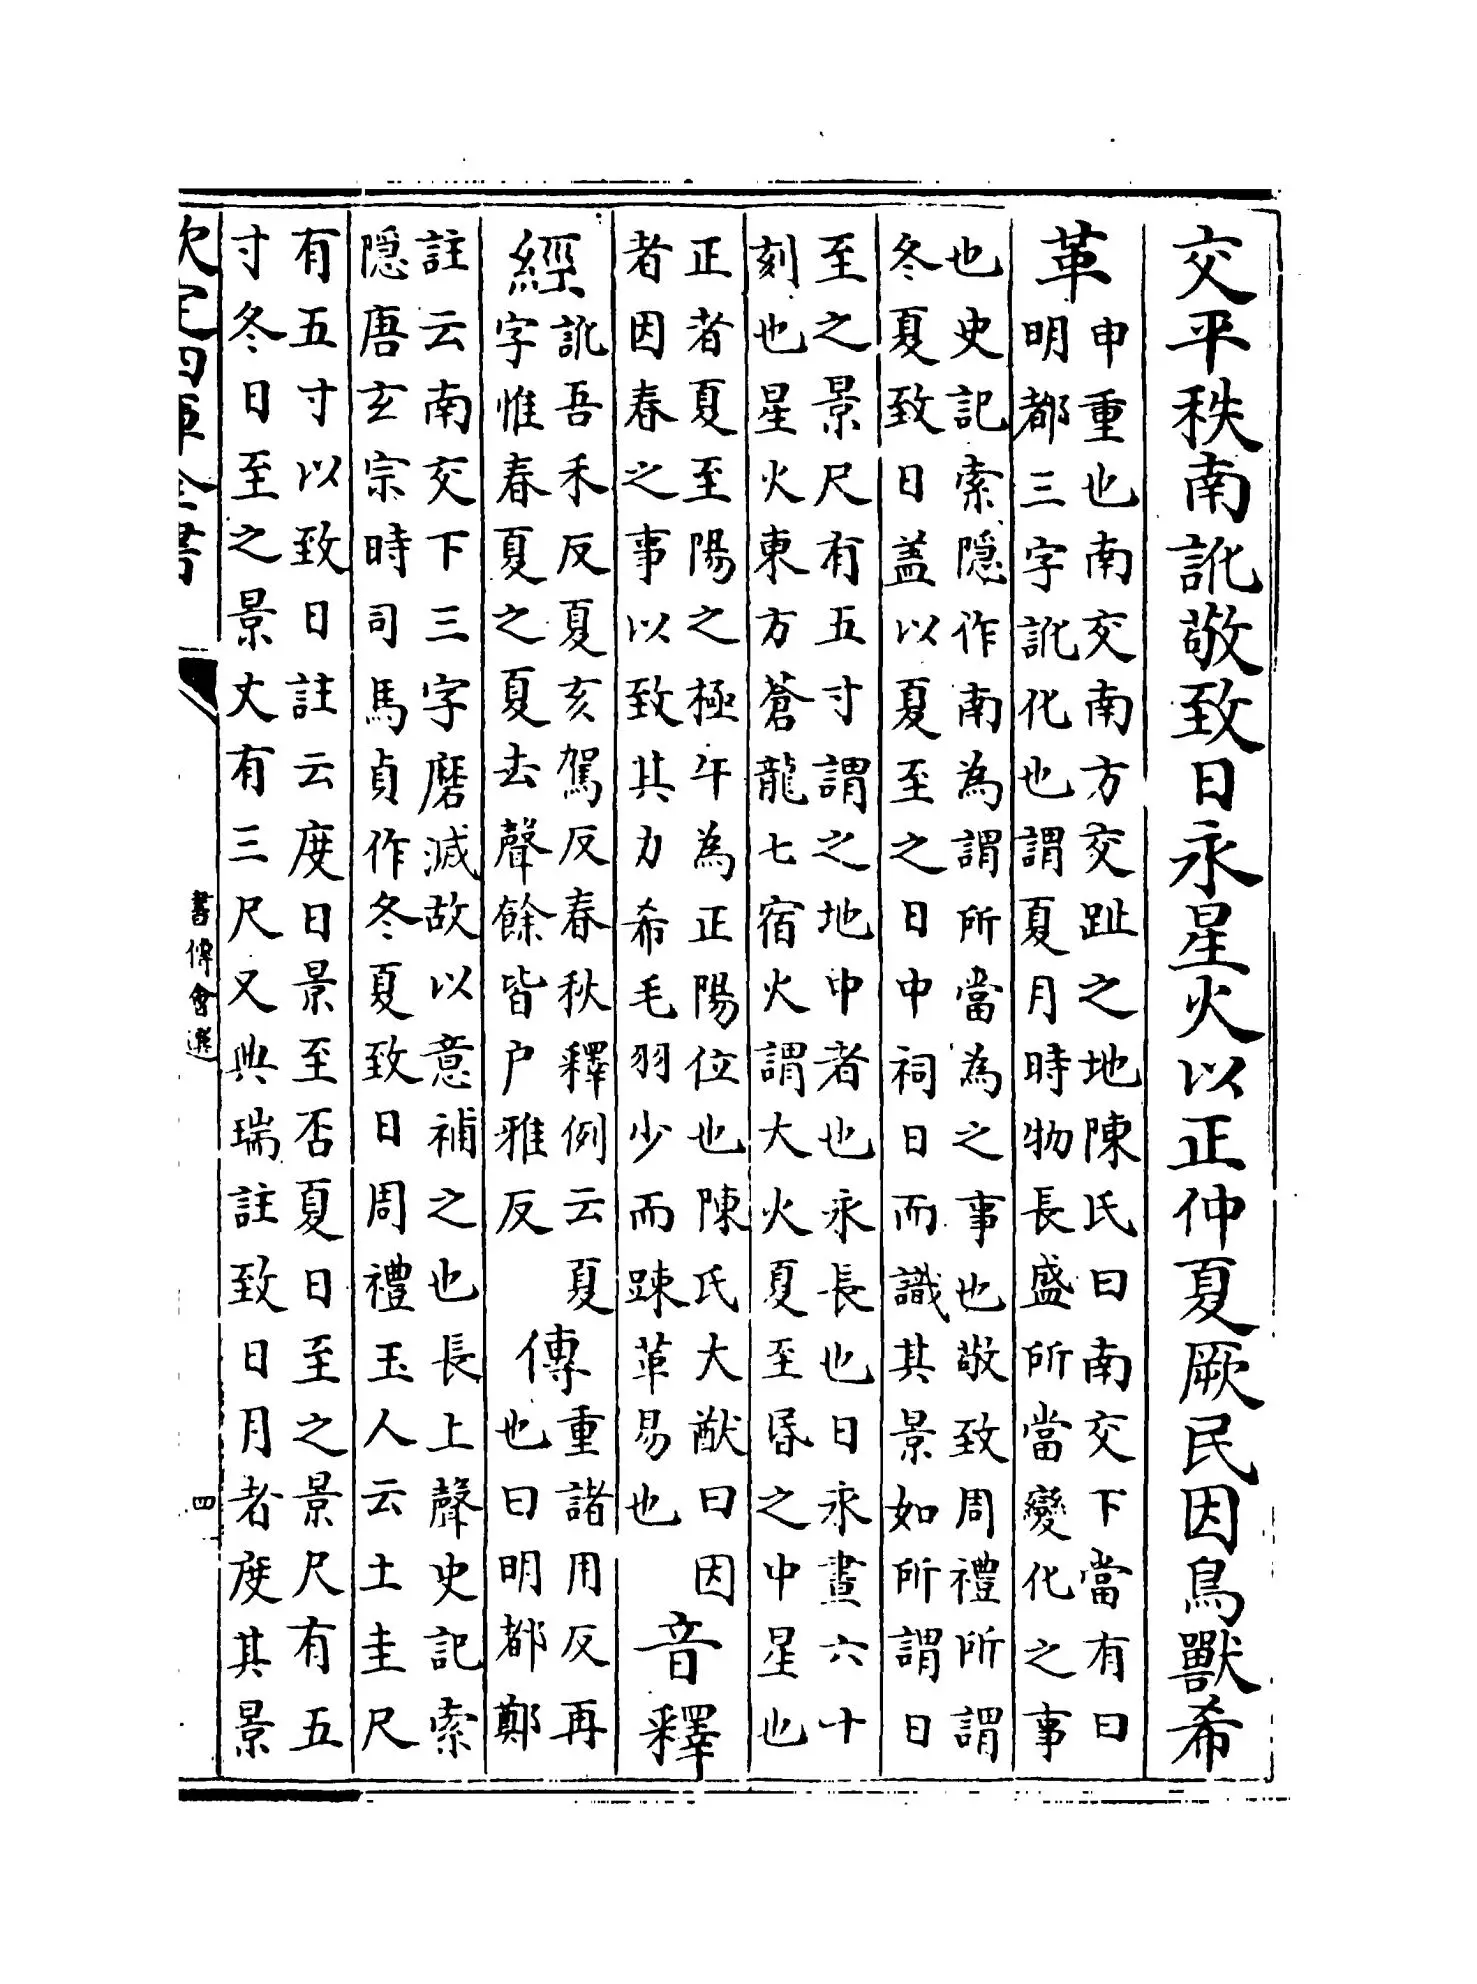 交平秩南訛敬致日永星火以正仲夏厥民因鳥獸希
革
申重也南交南方交趾之地陳氏曰南交下當有曰
明都三字訛化也謂夏月時物長盛所當變化之事
也史記索隠作南為謂所當為之事也敬致周禮所謂
冬夏致日盖以夏至之日中祠日而識其景如所謂日
至之景尺有五寸謂之地中者也永長也日永晝六十
刻也星火東方蒼龍七宿火謂大火夏至昏之中星也
正者夏至陽之極午為正陽位也陳氏大猷曰因
者因春之事以致其力希毛羽少而踈革易也
音釋
經
訛吾禾反夏亥駕反春秋釋例云夏
字惟春夏之夏去聲餘皆户雅反
傳
重諸用反再
也曰明都鄭
註云南交下三字磨滅故以意補之也長上聲史記索
隠唐玄宗時司馬貞作冬夏致日周禮玉人云土圭尺
有五寸以致日註云度日景至否夏日至之景尺有五
寸冬日至之景丈有三尺又典瑞註致日月者度其景
欽定四庫全書
書傳會選
四